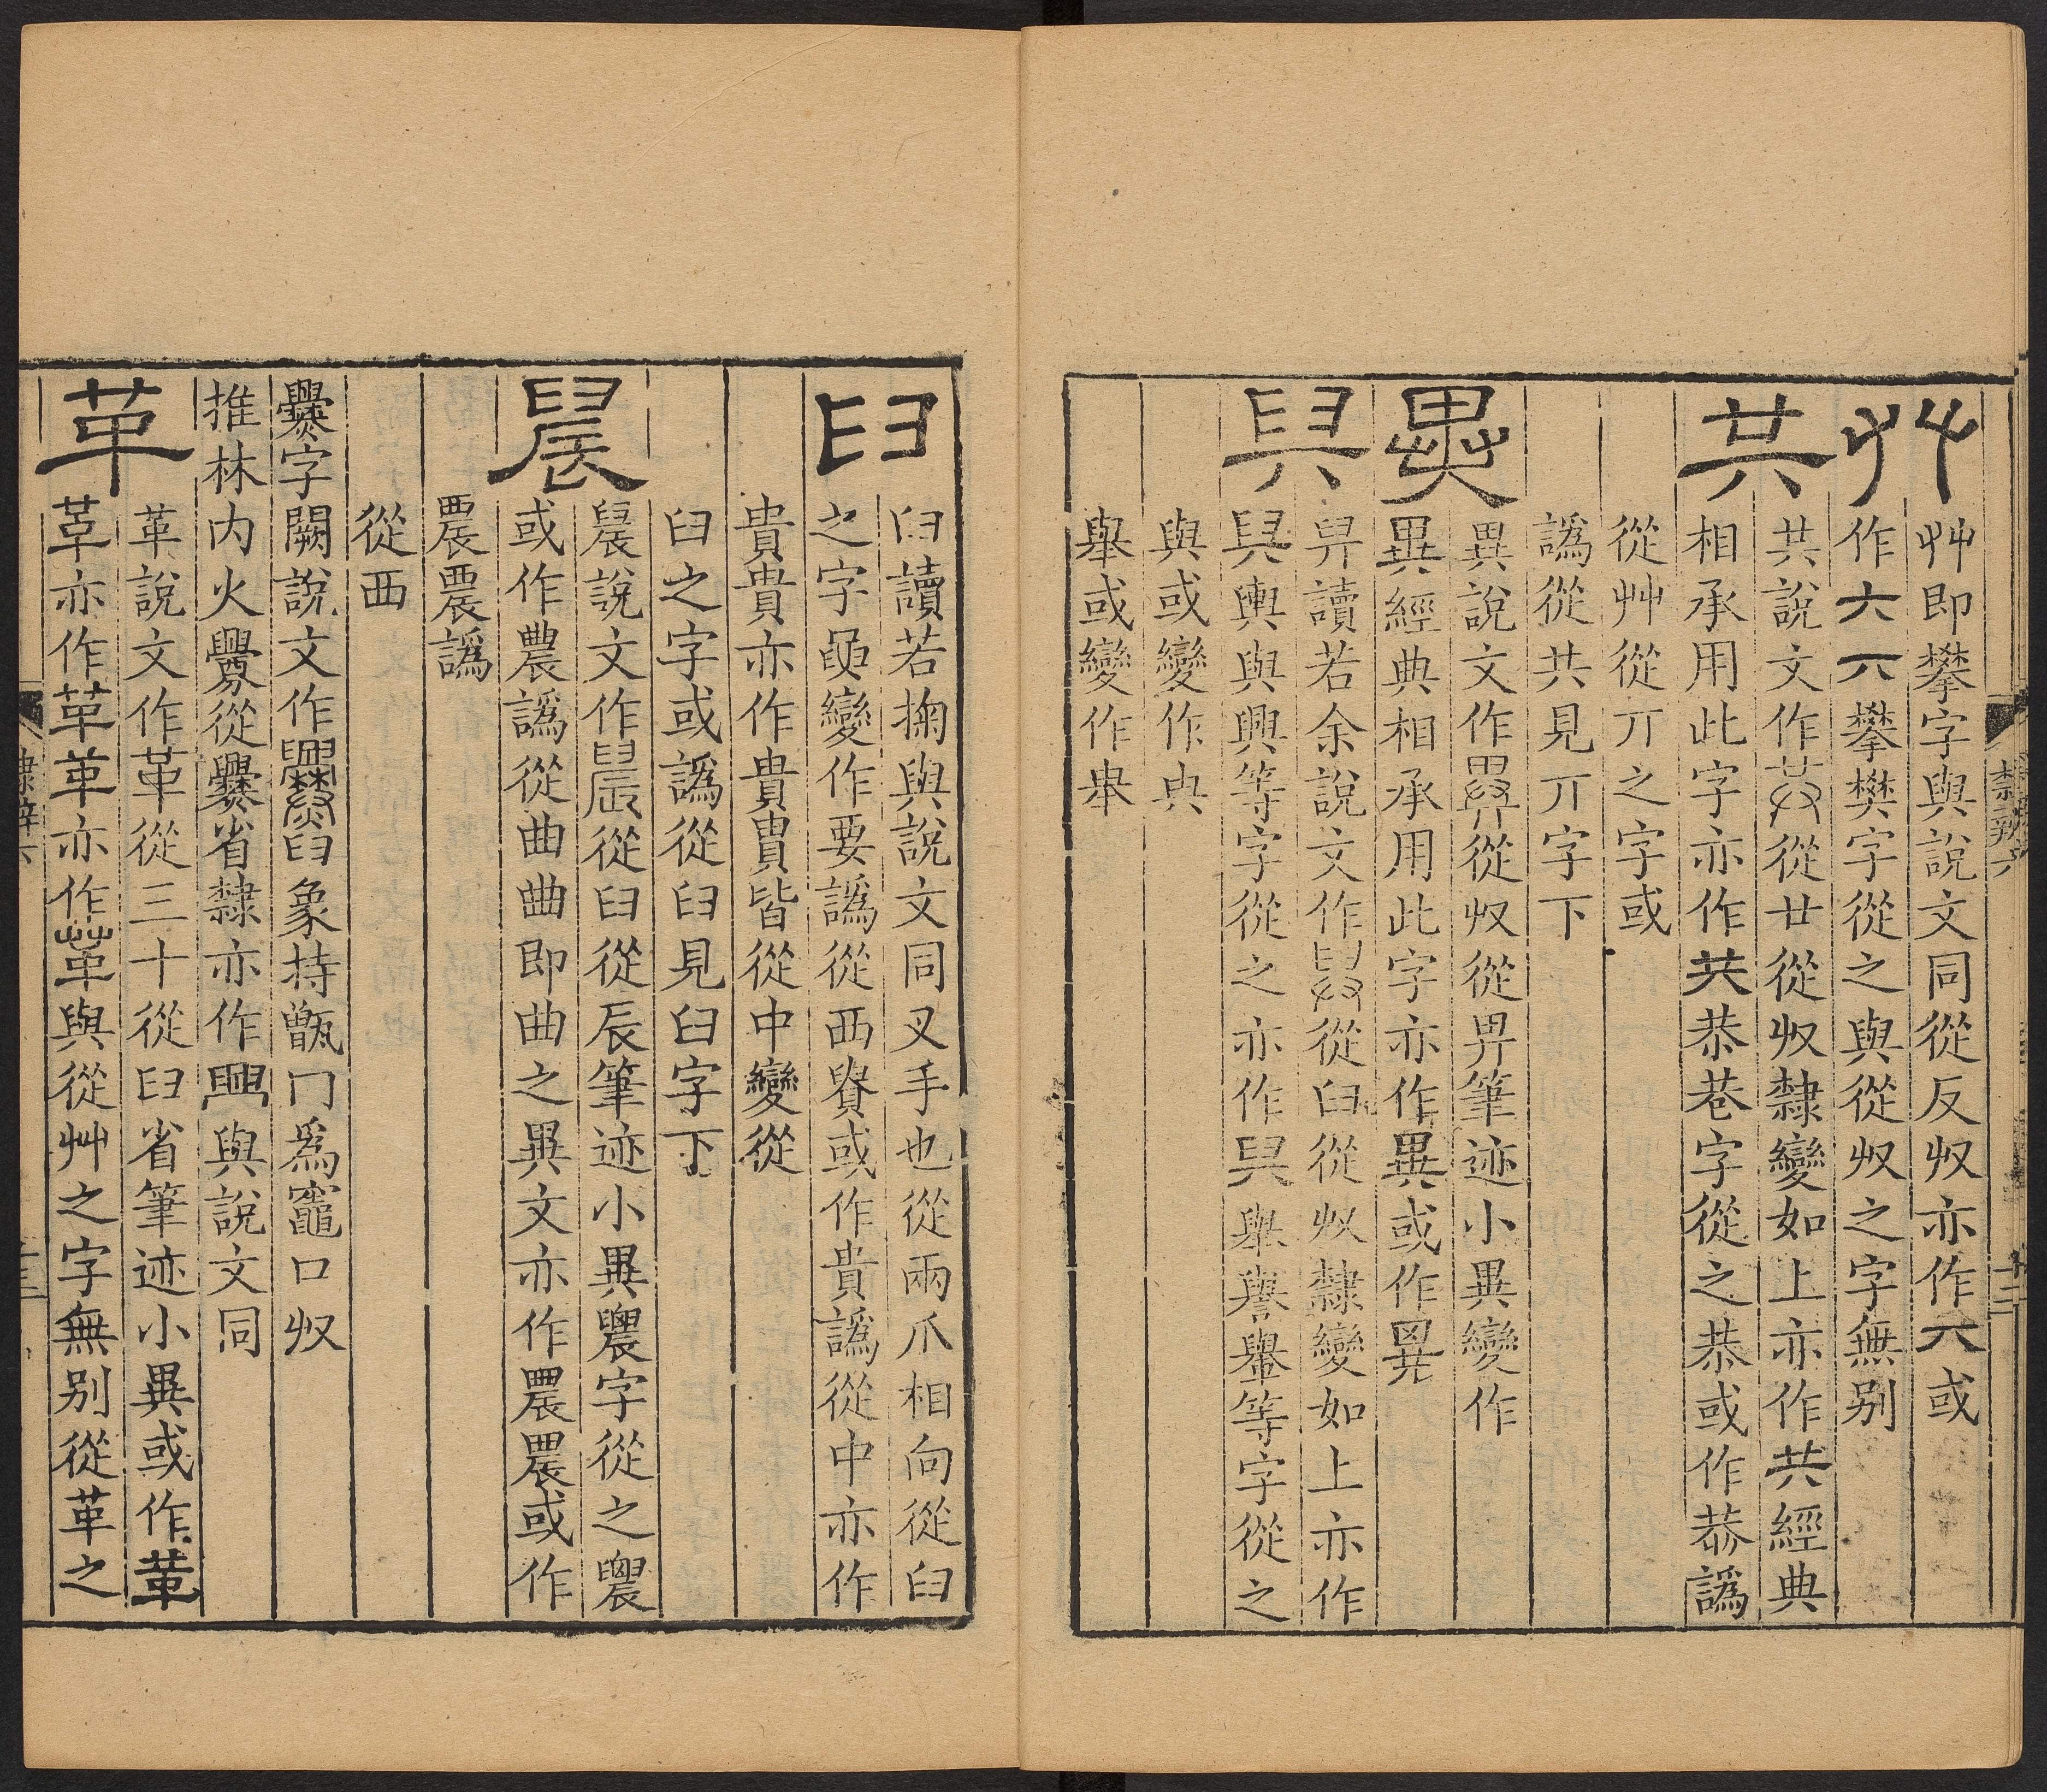 𠬜
𠬜即攀字與說文同從反𠬞亦作六或
作六𠀁攀樊字從之與從𠬞之字無别
共
共說文作𠔏從廿從𠬞隸變如上亦作共經典
相承用此字亦作共恭巷字從之恭或作恭譌
從艸從丌之字或
譌從共見丌字下
異
異說文作異從𠬞從畀筆迹小異變作
異經典相承用此字亦作異或作異
舁
舁讀若余說文作舁從𦥑從𠬞隸變如上亦作
舁輿與興等字從之亦作舁舉譽轝等字從之
與或變作㒷
舉或變作㪯
𦥑
𦥑讀若掬與說文同叉手也從兩爪相向從𦥑
之字𦥼變作要譌從西𧷓或作貴譌從中亦作
貴貴亦作貴貴皆從中變從
臼之字或譌從𦥑見臼字下
䢅
䢅說文作䢅從𦥑從辰筆迹小異農字從之農
或作農譌從曲曲即曲之異文亦作農農或作
農農譌
從西
爨字闕說文作爨𦥑象持甑冂爲竈口𠬞
推林内火釁從爨省隸亦作興與說文同
革
革說文作革從三十從𦥑省筆迹小異或作革
革亦作革革亦作革與從艸之字無别從革之
隸辨六
十二
隸辨六
十三